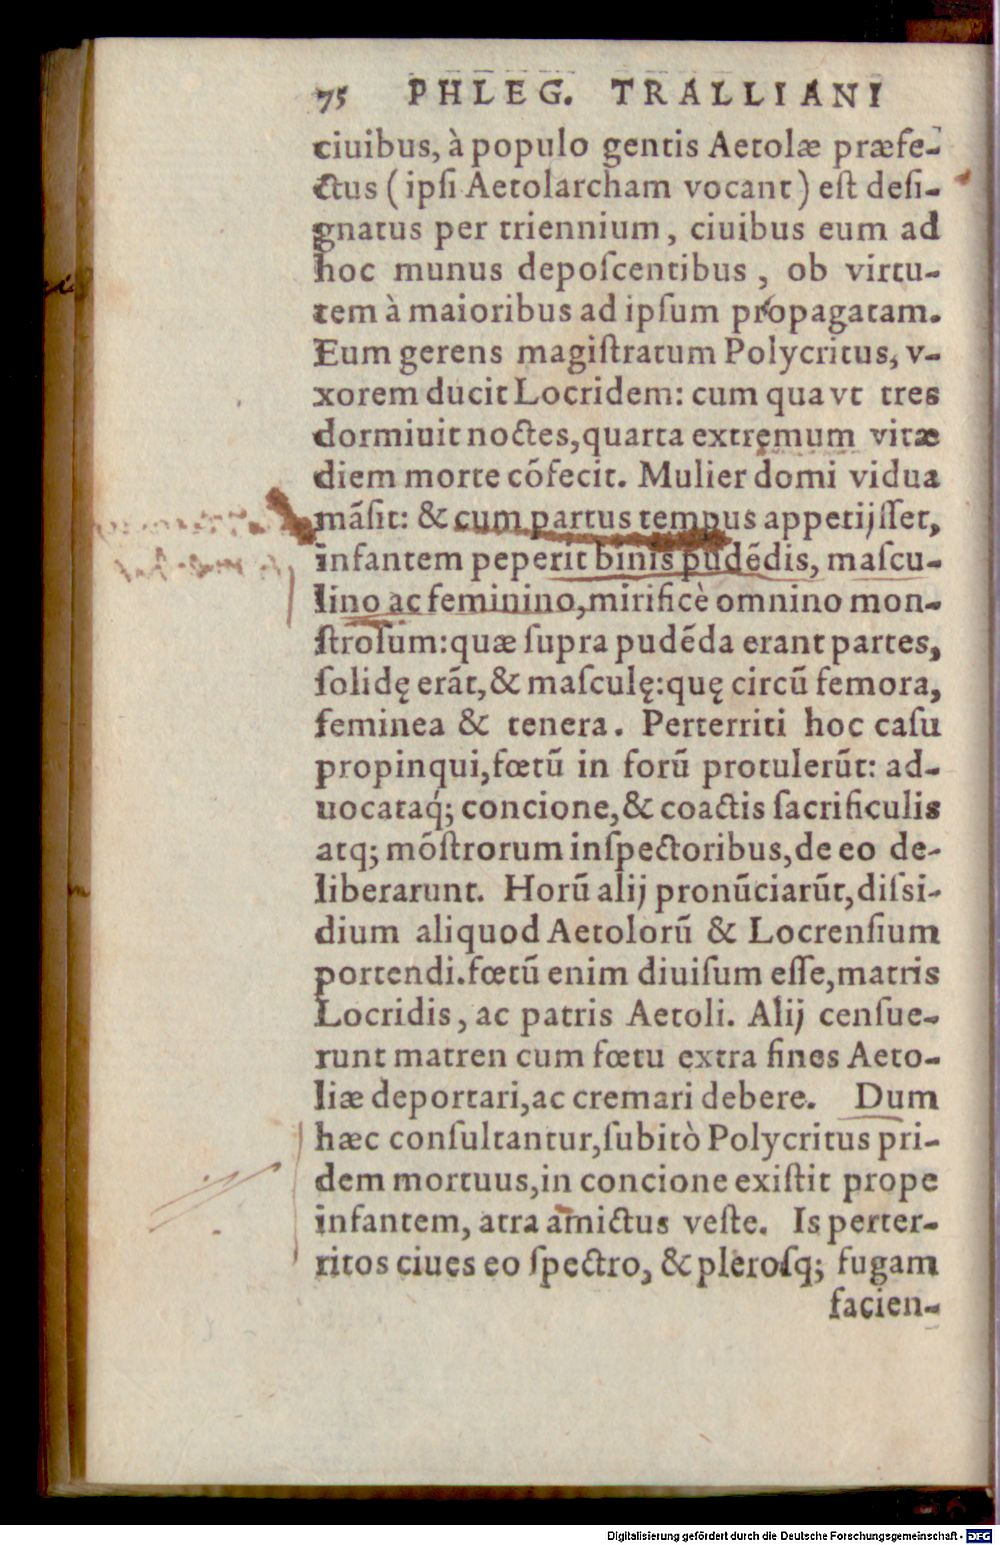 75 PHLEG. TRALLIANI
ciuibus, à populo gentis Aetolæ præfe-
ctus (ipſi Aetolarcham vocant) eſt deſi-
gnatus per triennium, ciuibus eum ad
hoc munus depoſcentibus, ob virtu-
tem à maioribus ad ipſum propagatam.
Eum gerens magiſtratum Polycritus, v-
xorem ducit Locridem: cum qua vt tres
dormiuit noctes, quarta extremum vitæ
diem morte cõfecit. Mulier domi vidua
mãſit: & cum partus tempus appetijſſet,
infantem peperit binis pudẽdis, maſcu-
lino ac feminino, mirificè omnino mon-
ſtroſum: quæ ſupra pudẽda erant partes,
ſolidę erãt, & maſculę: quę circũ femora,
feminea & tenera. Perterriti hoc caſu
propinqui, fœtũ in forũ protulerũt: ad-
uocataq́; concione, & coactis ſacrificulis
atq; mõſtrorum inſpectoribus, de eo de-
liberarunt. Horũ alij pronũciarũt, diſsi-
dium aliquod Aetolorũ & Locrenſium
portendi. fœtũ enim diuiſum eſſe, matris
Locridis, ac patris Aetoli. Alij cenſue-
runt matren cum fœtu extra fines Aeto-
liæ deportari, ac cremari debere. Dum
hæc conſultantur, ſubitò Polycritus pri-
dem mortuus, in concione exiſtit prope
infantem, atra amictus veſte. Is perter-
ritos ciues eo ſpectro, & pleroſq; fugam
facien-
Digitalisierung gefördert durch die Deutsche Forschungsgemeinschaft - DFG